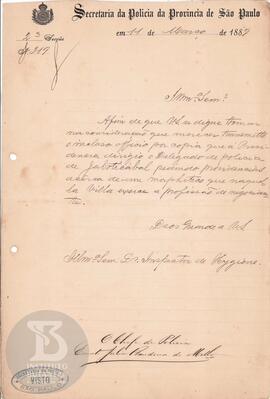 Secretaria da Policia da Provincia de São Paulo
2ª Secção
em 11 de Março de 1889
Nº 217
Illmo Senr
Afim de que VS. se digne tomar
na consideração que merecer transmitto
o incluso officio por copia que a Presi
dencia dirigio o Delegado de policia
de Jaboticabal pedindo providencias
acerca de um morphetico que naquel
la Villa exerce a profissão de negocian
te.
Deos Guarde a VS
Illmo Senr Dr Inspector de Hygiene
O Chefe de Policia
VISTO